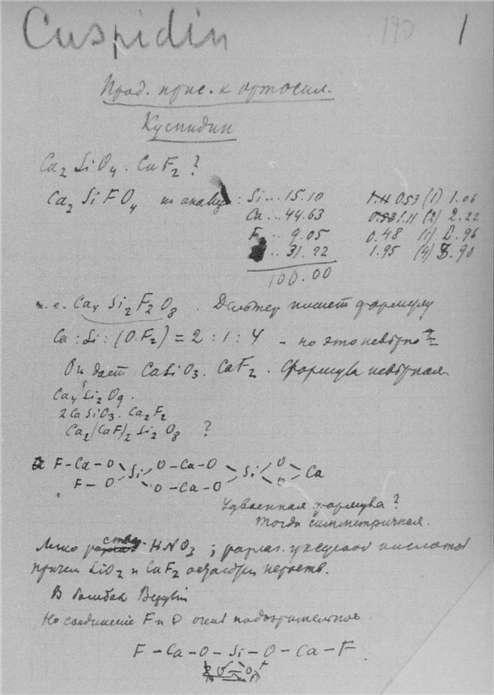 Cuspidin 190 1
Прод. прис. к ортосил.
Куспидин
Ca2 SiO4 . CaF2 ?
Ca2 SiFO4 по анализу: Si .. 15.10 0.53 (1) 1.06
Ca .. 44.63 1.11 (2) 2.22
F .. 9.05 0.48 (1) 0.96
31.22 1.95 (4) 3.90
100.00
т.е. Ca4 Si2 F2 O8 . Дельтер пишет формулу
Ca : Si : (O.F2) = 2 : 1 : 4 – но это неверно
Он дает CaSiO3 . CaF2 . Формула неверная
Ca4 Si2 O9 .
2CaSiO3 . Ca2F2
Ca2 (CaF)2 Si2 O8 ?
F–Ca–O Si O–Ca–O Si O Ca
F–O O–Ca–O O
Удвоенная формула ?
тогда симметричная.
Легко HNO3 ; разлаг. уксусной кислотой
причем SiO2 и CaF2 остаются нераств.
В бомбах Везувия
Но соединение F и O очень подозрительное
F – Ca – O – Si – O – Ca – F